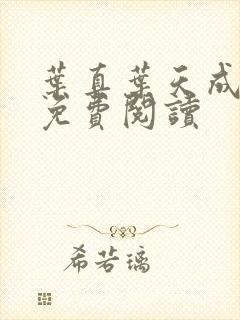 葉真葉天成
免費閱讀
希若璃